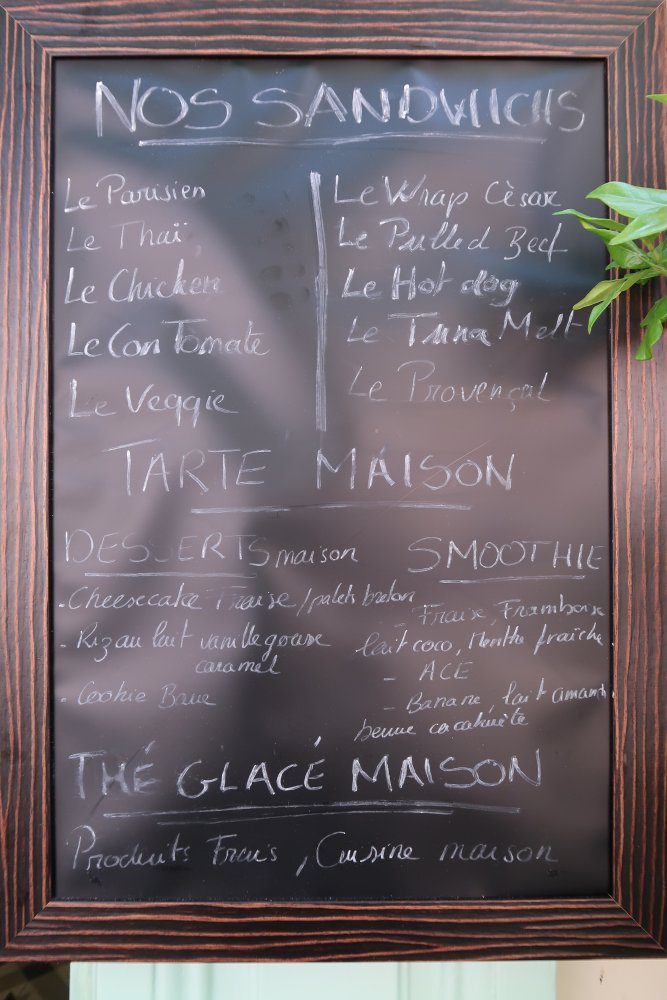 NOS SANDWICHS
Le Parisien
Le Thaï
Le Chicken
Le Con Tomate
Le Veggie
Le Wrap Cèsar
Le Pulled Beef
Le Hot dog
Le Tuna Melt
Le Provençal
TARTE MAISON
DESSERTS maison
- Cheesecake Fraise / palets breton
- Riz au lait vanille gousse
caramel
- Cookie Barre
SMOOTHIE
- Fraise, Framboise
lait coco, Menthe fraîche
- ACE
- Banane, lait amande
beurre cacahuète
THÉ GLACÉ MAISON
Produits Frais, Cuisine maison